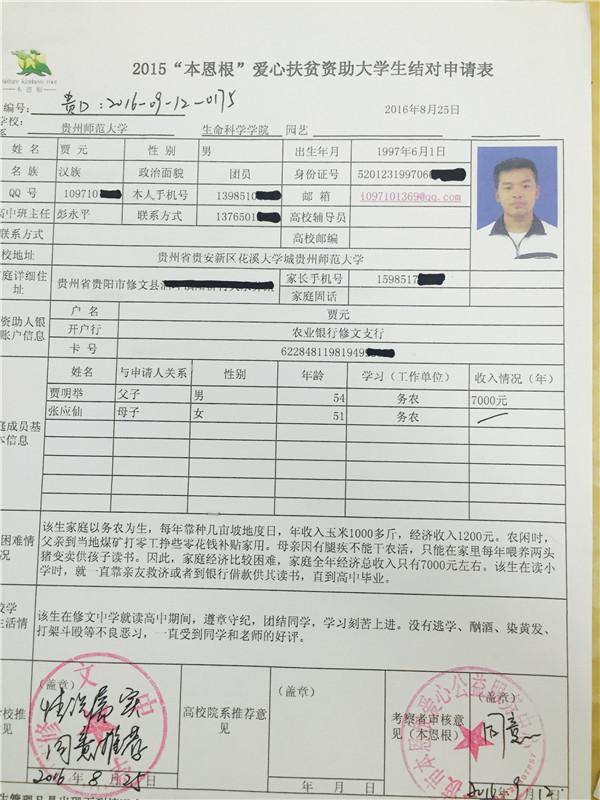 nature kindness root
本恩根
2015“本恩根”爱心扶贫资助大学生结对申请表
编号: 贵D:2016-09-12-0175
2016年8月25日
学校: 贵州师范大学 生命科学学院 园艺
姓 名 贾元 性 别 男 出生年月 1997年6月1日
名 族 汉族 政治面貌 团员 身份证号 5201231997060
QQ 号 109710 本人手机号 1398510 邮 箱 1097101369@qq.com
高中班主任 彭永平 联系方式 1376501 高校辅导员
联系方式 高校邮编
校地址 贵州省贵安新区花溪大学城贵州师范大学
庭详细住址 贵州省贵阳市修文县 家长手机号 1598517
家庭固话
资助人银账户信息
户 名 贾元
开户行 农业银行修文支行
卡 号 622848119819499
庭成员基本信息
姓名 与申请人关系 性别 年龄 学习（工作单位） 收入情况（年）
贾明举 父子 男 54 务农 7000元
张应仙 母子 女 51 务农
困难情况
该生家庭以务农为生，每年靠种几亩坡地度日，年收入玉米1000多斤，经济收入1200元。农闲时，
父亲到当地煤矿打零工挣些零花钱补贴家用。母亲因有腿疾不能干农活，只能在家里每年喂养两头
猪变卖供孩子读书。因此，家庭经济比较困难，家庭全年经济总收入只有7000元左右。该生在读小
学时，就一直靠亲友救济或者到银行借款供其读书，直到高中毕业。
校学生活情
该生在修文中学就读高中期间，遵章守纪，团结同学，学习刻苦上进。没有逃学、酗酒、染黄发、
打架斗殴等不良恶习，一直受到同学和老师的好评。
学校推见
（盖章）
情况属实
同意推荐
2016年8月25日
高校院系推荐意见
（盖章）
年 月 日
考察者审核意见（本恩根）
（盖章）
同意
2016年9月12日